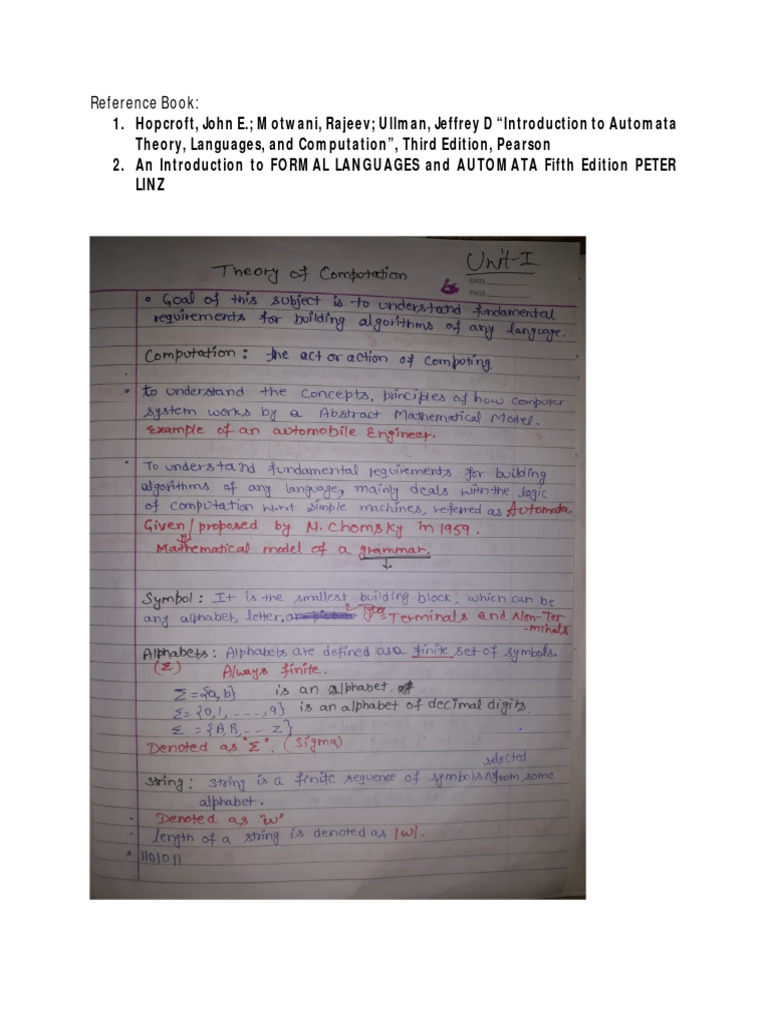 Reference Book:
1. Hopcroft, John E.; Motwani, Rajeev; Ullman, Jeffrey D “Introduction to Automata
Theory, Languages, and Computation”, Third Edition, Pearson
2. An Introduction to FORMAL LANGUAGES and AUTOMATA Fifth Edition PETER
LINZ
Unit-I
Theory of Computation
DATE
PAGE
• Goal of this subject is to understand fundamental
requirements for building algorithms of any language.
Computation: the act or action of computing.
• to understand the concepts, principles of how computer
system works by a Abstract Mathematical Model.
Example of an automobile Engineer.
• To understand fundamental requirements for building
algorithms of any language, mainly deals with the logic
of computation w.r.t simple machines, referred as Automata.
Given/proposed by N. Chomsky in 1959.
Mathematical model of a grammar.
Symbol: It is the smallest building block, which can be
any alphabet, letter, 2 Types Terminals and Non-Ter
-minals
Alphabets: Alphabets are defined as a finite set of symbols.
(Σ) Always finite.
Σ = {a, b} is an alphabet.
Σ = {0, 1, ----, 9} is an alphabet of decimal digits.
Σ = {A, B, --- Z}
Denoted as "Σ". (Sigma)
selected
String: String is a finite sequence of symbols ^ from some
alphabet.
• Denoted as "w"
- length of a string is denoted as |w|.
* 1101011